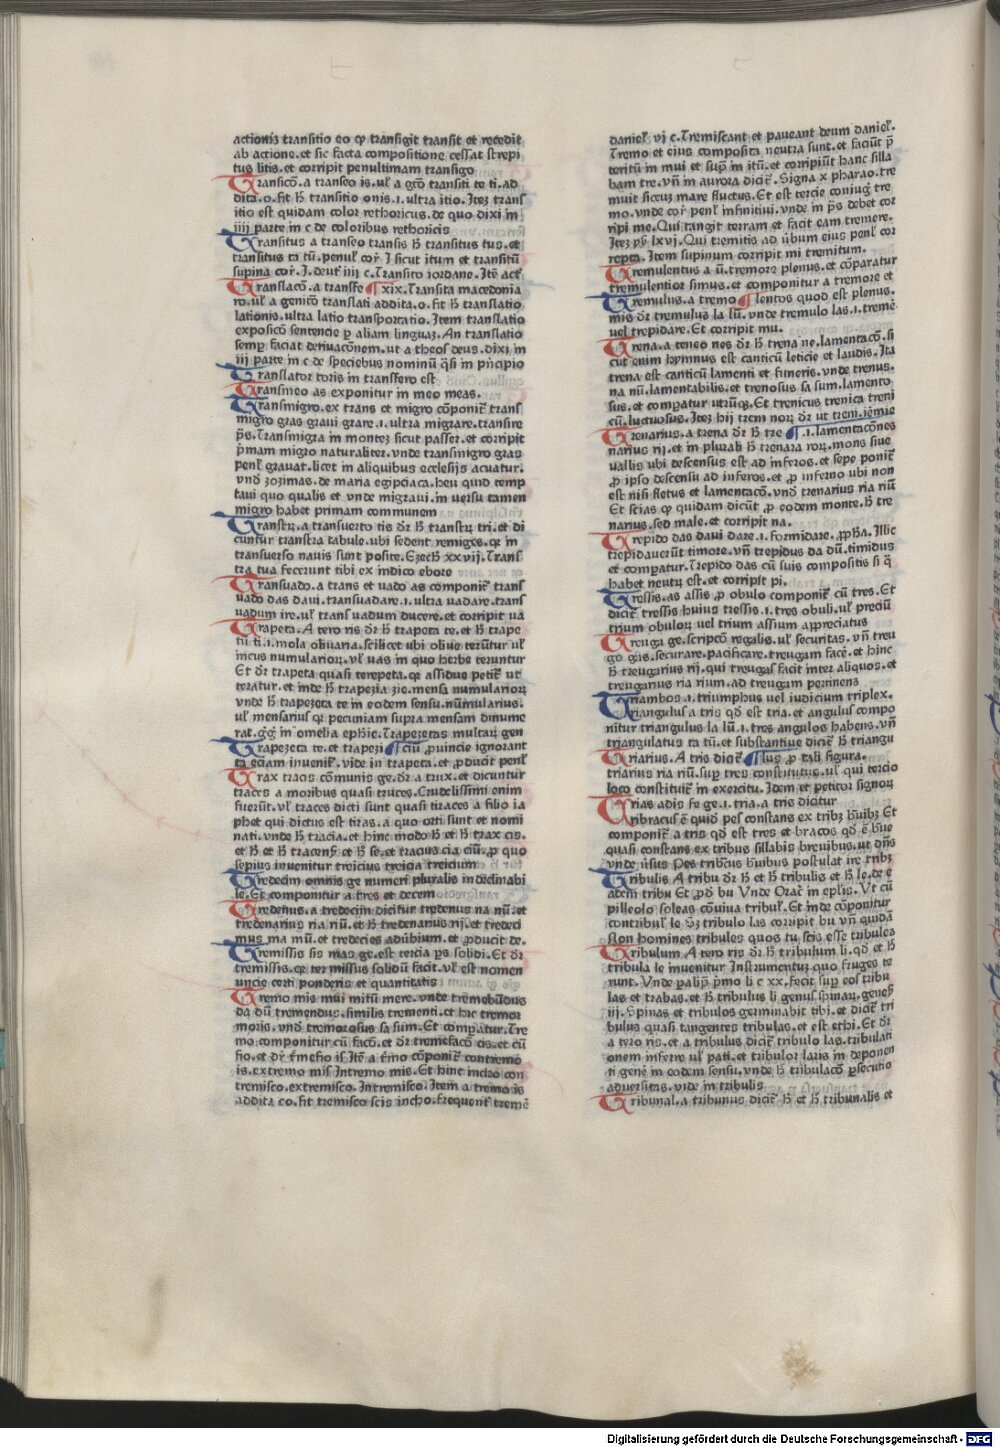 actionis transitio eo ꝙ transigit transit et recedit
ab actione. et sic facta compositione cessat strepi
tus litis. et corripit penultimam transigo
Transicō. a transeo is. ul̓ a gtō transiti te ti. ad
dita. o. fit ħ transitio onis. i. ultra itio. Itez trans
itio est quidam color rethoricus. de quo dixi in
iiij parte in c de coloribus rethoricis
Transitus a transeo transis ħ transitus tus. et
transitus ta tū. penul̓ cor̄. J sicut itum et transitū
supina cor̄. J. deut̓ iij c. Transito iordane. Itē act̓
Translacō. a transfe ¶ xix. Transita macedonia
ro. ul̓ a genico translati addita. o. fit ħ translatio
lationis. ultra latio transportatio. Item translatio
exposicō sentencie ꝑ aliam linguaz. An translatio
semꝑ faciat deriuacōnem. ut a theos deus. dixi in
iij parte in c de speciebus nominū q̄si in pn̓cipio
Translator toris in transfero est
Transmeo as exponitur in meo meas.
Transmigro. ex trans et migro cōponit̄ trans
migro gras graui grare. i. ultra migrare. transire
p̄s. Transmigra in montez sicut passer. et corripit
p̓mam migro naturaliter. vnde transmigro gras
penl̓ grauat. licet in aliquibus ecclesijs acuatur.
vnd̓ zozimas. de maria egipciaca. heu quid temp
taui quo qualis et vnde migraui. in uersu tamen
migro habet primam communem
Transtꝝ. a transuerto tis dr̄ ħ transtꝝ tri. et di
cuntur transtra tabule. ubi sedent remiges. ꝙ in
transuerso nauis sunt posite. Ezech̓ xx vij. Trans
tra tua fecerunt tibi ex indico ebore
Transuado. a trans et uado as componit̄ trans
uado das daui. transuadare. i. ultra uadare. trans
uadum ire. ul̓ trans uadum ducere. et corripit ua
Trapeta. A tero ris dr̄ ħ trapeta te. et ħ trape
tū ti. i. mola oliuaria. scilicet ubi oliue terūtur ul̓
incus numularioꝝ. ul̓ uas in quo herbe teruntur
Et dr̄ trapeta quasi terepeta. ꝙ assidue petit̄ ut
teratur. et inde ħ trapezia zie. mensa numularioꝝ
vnde ħ trapezeta te in eodem sensu. nūmularius.
ul̓ mensarius ꝙ pecuniam supra mensam dinume
rat. g̓g̓ in omelia epħie. Trapezetas multarꝝ gen
Trapezeta te. et trapezi ¶ ciū ꝓuincie ignorant
ta eciam inuenit̄. vide in trapeta. et ꝓducit penl̓
Trax tracis cōmunis ge. dr̄ a trux. et dicuntur
traces a moribus quasi truces. Crudelissimi enim
fuerūt. ul̓ traces dicti sunt quasi tiraces a filio ia
phet qui dictus est tiras. a quo orti sunt et nomi
nati. vnde ħ tracia. et hinc modo ħ et ħ trax cis.
et ħ et ħ tracenẜ et ħ se. et tracus cia ciū. ꝓ quo
sepius inuenitur treicius treicia treicium
Tredecim omnis ge numeri pluralis indeclinabi
le. Et componitur a tres et decem
Tredenus. a tredecim dicitur tredenus na nū. et
tredenarius ria riū. et ħ tredenarius rij. et tredeci
mus ma mū. et tredecies aduerbium. et ꝓducit de.
Tremissis sis mas ge. est tercia ps̄ solidi. Et dr̄
tremissis. ꝙ ter missus solidū facit. ul̓ est nomen
uncie certi ponderis et quantitatis
Tremo mis mui mitū mere. vnde tremebūdus
da dū tremendus. similis trementi. et hic tremor
moris. vnd̓ tremorosus sa sum. Et comꝑatur. Tre
mo componitur cū facō. et dr̄ tremefacō cis. et cū
fio. et dr̄ t̓mefio is. Itē a t̓mo cōponit̄ contremo
is. extremo mis Intremo mis. Et hinc inchō con
tremisco. extremisco. Intremisco. Item a tremo is
addita co. fit tremisco scis inchō. frequent̄ tremē
daniel̓ vj c. Tremiscant et paueant deum daniel̓.
Tremo et eius composita neutra sunt. et faciūt p̄
teritū in mui et sup̄ in itū. et corripiūt hanc silla
bam tre. vn̄ in aurora dicit̄. Signa x pharao. tre
muit siccuz mare fluctus. Et est tercie coniug̓ tre
mo. vnde cor̄ penl̓ infinitiui. vnde in p̄s debet cor
ripi me. Qui tangit terram et facit eam tremere.
Itez ps̄ lxvj. Qui tremitis ad ūbum eius penl̓ cor
repta. Item supinum corripit mi tremitum.
Tremulentus a ū. tremore plenus. et cōparatur
tremulentior simus. et componitur a tremore et
Tremulus. a tremo ¶ lentos quod est plenus.
mis dr̄ tremulus la lū. vnde tremulo las. i. tremē
uel trepidare. Et corripit mu.
Trena. a teneo nes dr̄ ħ trena ne. lamentacō. si
cut enim hymnus est canticū leticie et laudis. Ita
trena est canticū lamenti et funeris. vnde trenus.
na nū. lamentabilis. et trenosus sa sum. lamento
sus. et comꝑatur utrūꝙ. Et trenicus trenica treni
cū. luctuosus. Itez hij treni norꝝ dr̄ ut treni. iēmie
Trenarius. a trena dr̄ ħ tre ¶ .i. lamentacōnes
narius rij. et in plurali ħ trenara roꝝ. mons siue
uallis ubi descensus est ad inferos. et sepe ponit̄
ꝓ ipso descensu ad inferos. et ꝓ inferno ubi non
est nisi fletus et lamentacō. vnd̓ trenarius ria riū
Et scias ꝙ quidam dicūt ꝓ eodem monte. ħ tre
narius. sed male. et corripit na.
Trepido das daui dare. i. formidare. ꝓpħa. Illic
trepidauerūt timore. vn̄ trepidus da dū. timidus
et comꝑatur. Trepido das cū suis compositis si q̄
habet neutꝝ est. et corripit pi.
Tressis. as assis ꝓ obulo componit̄ cū tres. Et
dicit̄ tressis huius tressis. i. tres obuli. ul̓ preciū
trium obuloꝝ uel trium assium appreciatus
Treuga ge. scripcō regalis. ul̓ securitas. vn̄ treu
go gas. securare. pacificare. treugam facē. et hinc
ħ treugarius rij. qui treugas facit inter aliquos. et
treuganus ria rium. ad treugam pertinens
Triambos. i. triumphus uel iudicium triplex.
Triangulus a tris qd̓ est tria. et angulus compo
nitur triangulus la lū. i. tres angulos habens. vn̄
triangulatus ta tū. et substantiue dicit̄ ħ triangu
Triarius. A tris dicit̄ ¶ lus ꝓ tali figura.
triarius ria riū. suꝑ tres constitutus. ul̓ qui tercio
loco constituit̄ in exercitu. Idem et petitor signoꝝ
Trias adis fe ge. i. tria. a tris dicitur
Tribracus ē quid̓ pes constans ex tribꝫ b̓uibꝫ Et
componit̄ a tris qd̓ est tres et bracos qd̓ ē b̓ue
quasi constans ex tribus sillabis breuibus. ut dn̄s
vnde ūsus Pes tribc̓us b̓uibus postulat ire tribꝫ
Tribulis A tribu dr̄ ħ et ħ tribulis et ħ le. de e
adem tribu Et ꝓd̓ bu Vnde Orac̓ in epl̓is. Vt cū
pilleolo soleas cōuiua tribul̓. Et inde cōponitur
contribul̓ le Vꝫ tribulo las corripit bu vn̄ quidā
Non homines tribules quos tu scis esse tribules
Tribulum A tero ris dr̄ ħ tribulum li. qd̓ et ħ
tribula le inuenitur Instrumentuz quo fruges te
runt. Vnde ꝑalip̄ p̄mo li c xx. fecit suꝑ eos tribu
las et trabas. et ħ tribulus li genus spinaꝝ. geneẜ
iij. Spinas et tribulos germinabit tibi. et dicit̄ tri
bulus quasi tangentes tribulas. et est ethī. Et dr̄
a tero ris. et a tribulus dicit̄ tribulo las. tribulati
onem inferre ul̓ pati. et tribulor laris in deponen
ti genē in eodem sensu. vnde ħ tribulacō ꝑsecutio
aduersitas. vide in tribulis
Tribunal. a tribunus dicit̄ ħ et ħ tribunalis et
Digitalisierung gefördert durch die Deutsche Forschungsgemeinschaft - DFG